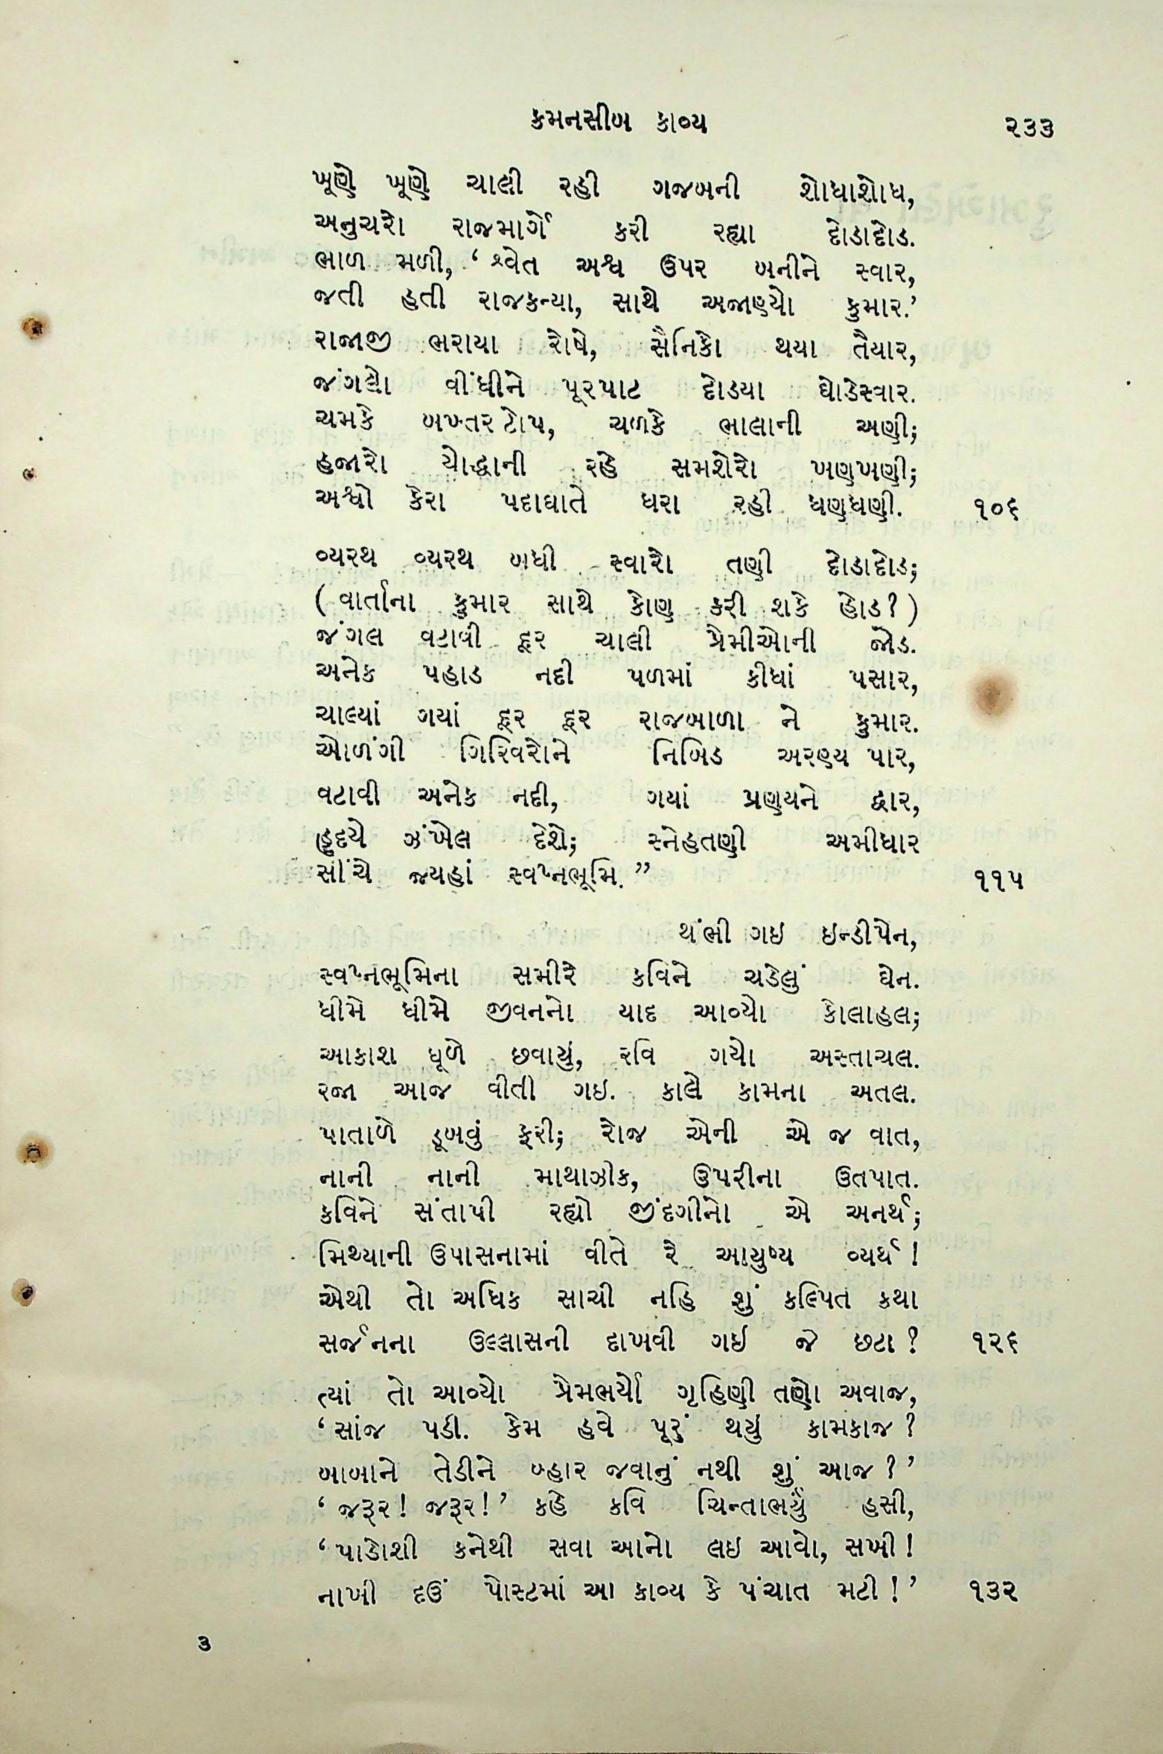 કમનસીબ કાવ્ય ૨૩૩
ખૂણે ખૂણે ચાલી રહી ગજબની શોધાશોધ,
અનુચરો રાજમાર્ગે કરી રહ્યા દોડાદોડ.
ભાળ મળી, ‘ શ્વેત અશ્વ ઉપર બનીને સ્વાર,
જતી હતી રાજકન્યા, સાથે અજાણ્યો કુમાર.’
રાજાજી ભરાયા રોષે, સૈનિકો થયા તૈયાર,
જંગલો વીંધીને પૂરપાટ દોડ્યા ઘોડેસ્વાર.
ચમકે બખ્તર ટોપ, ચળકે ભાલાની અણી;
હજારો યોદ્ધાની રહે સમશેરો ખણખણી;
અશ્વો કેરા પદાઘાતે ધરા રહી ધણધણી. ૧૦૬
વ્યરથ વ્યરથ બધી સ્વારો તણી દોડાદોડ;
( વાર્તાના કુમાર સાથે કોણ કરી શકે હોડ ? )
જંગલ વટાવી દૂર ચાલી પ્રેમીઓની જોડ.
અનેક પહાડ નદી પળમાં કીધાં પસાર,
ચાલ્યાં ગયાં દૂર દૂર રાજબાળા ને કુમાર.
ઓળંગી ગિરિવરોને નિબિડ અરણ્ય પાર,
વટાવી અનેક નદી, ગયાં પ્રણયને દ્વાર,
હૃદયે ઝંખેલ દેશે; સ્નેહતણી અમીધાર
સીંચે જ્યહાં સ્વપ્નભૂમિ. ”  ૧૧૫
થંભી ગઇ ઇન્ડીપેન,
સ્વપ્નભૂમિના સમીરે કવિને ચડેલું ઘેન.
ધીમે ધીમે જીવનનો યાદ આવ્યો કોલાહલ;
આકાશ ધૂળે છવાયું, રવિ ગયો અસ્તાચલ.
રજા આજ વીતી ગઇ. કાલે કામના અતલ.
પાતાળે ડૂબવું ફરી; રોજ એની એ જ વાત,
નાની નાની માથાઝીક, ઉપરીના ઉતપાત.
કવિને સંતાપી રહ્યો જીંદગીનો એ અનર્થ;
મિથ્યાની ઉપાસનામાં વીતે રે આયુષ્ય વ્યર્થ !
એથી તો અધિક સાચી નહિ શું કલ્પિત કથા
સર્જનના ઉલ્લાસની દાખવી ગઈ જે છટા ? ૧૨૬
ત્યાં તો આવ્યો પ્રેમભર્યો ગૃહિણી તણો અવાજ,
‘ સાંજ પડી. કેમ હવે પૂરું થયું કામકાજ ?
બાબાને તેડીને બ્હાર જવાનું નથી શું આજ ? ’
‘ જરૂર ! જરૂર ! ’ કહે કવિ ચિન્તાભર્યું હસી,
‘ પાડોશી કનેથી સવા આનો લઇ આવો, સખી !
નાખી દઉં પોસ્ટમાં આ કાવ્ય કે પંચાત મટી ! ’ ૧૩૨
૩